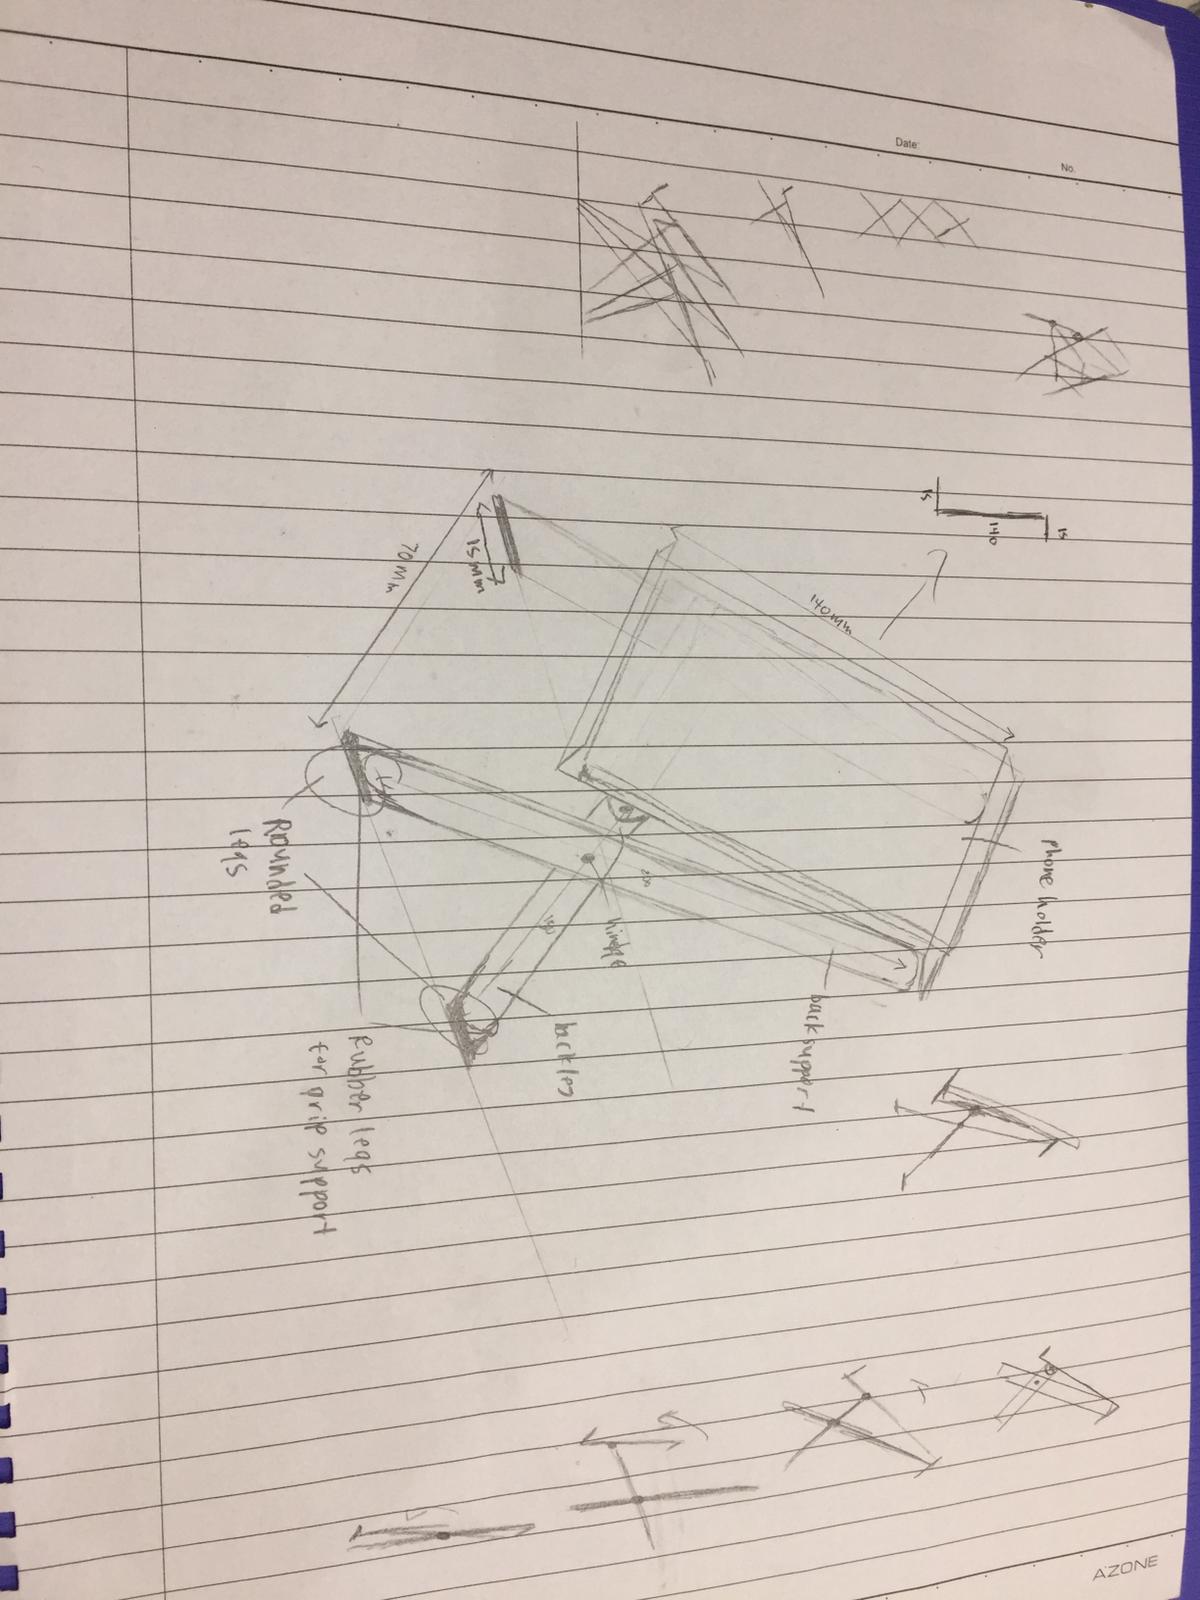 AZONE
No.
Date:
15
140
15
phone holder
140mm
back support
200
hindge
back leg
150
15mm
70mm
Rubber legs
for grip support
Rounded
legs